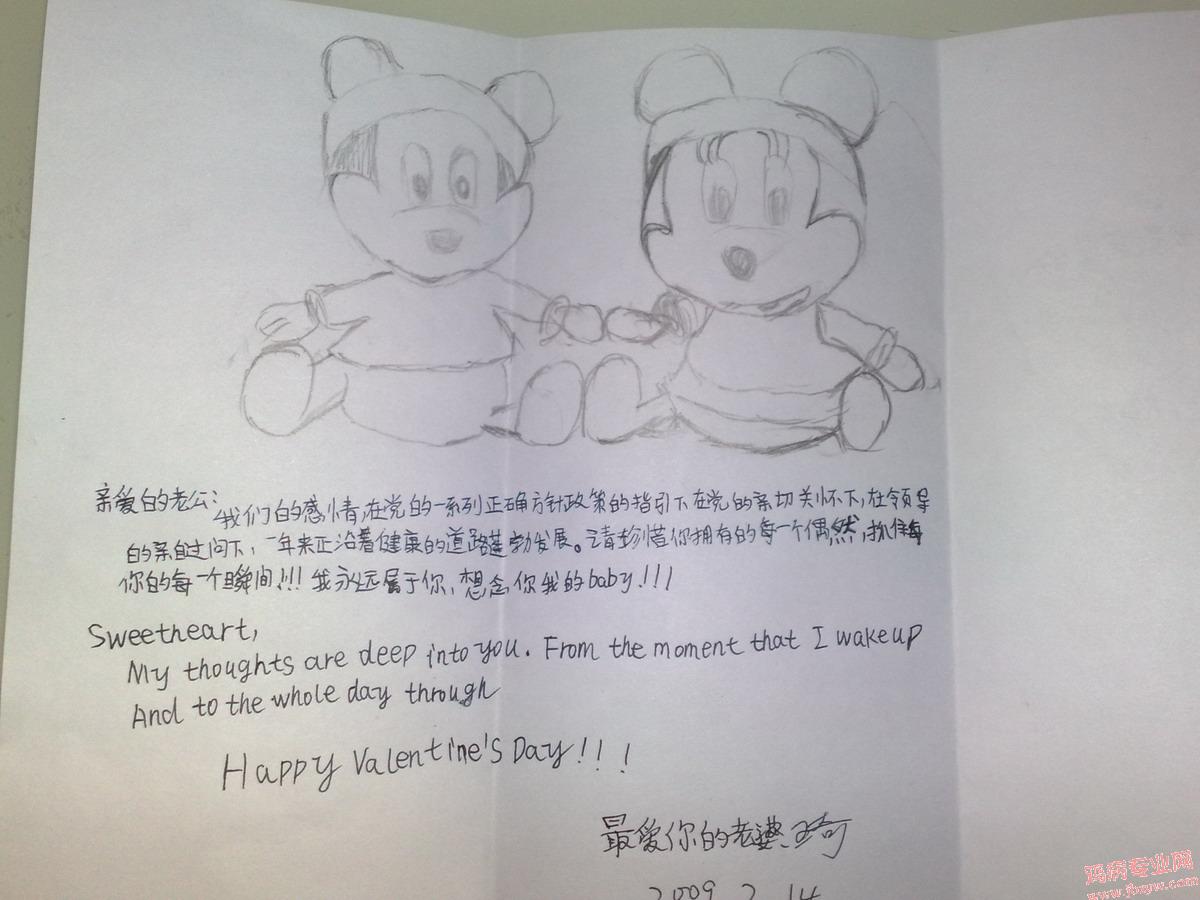 亲爱的老公:
我们的感情,在党的一系列正确方针政策的指引下在党的亲切关怀下,在领导
的亲自过问下,一年来正沿着健康的道路蓬勃发展。请珍惜你拥有的每一个偶然,抓住每
你的每一个瞬间!!!我永远属于你,想念你我的baby!!!
Sweetheart,
My thoughts are deep into you. From the moment that I wake up
And to the whole day through
Happy Valentine's Day!!!
最爱你的老婆:琦
2009 2 14
鸡病专业网
www.jbzyw.com